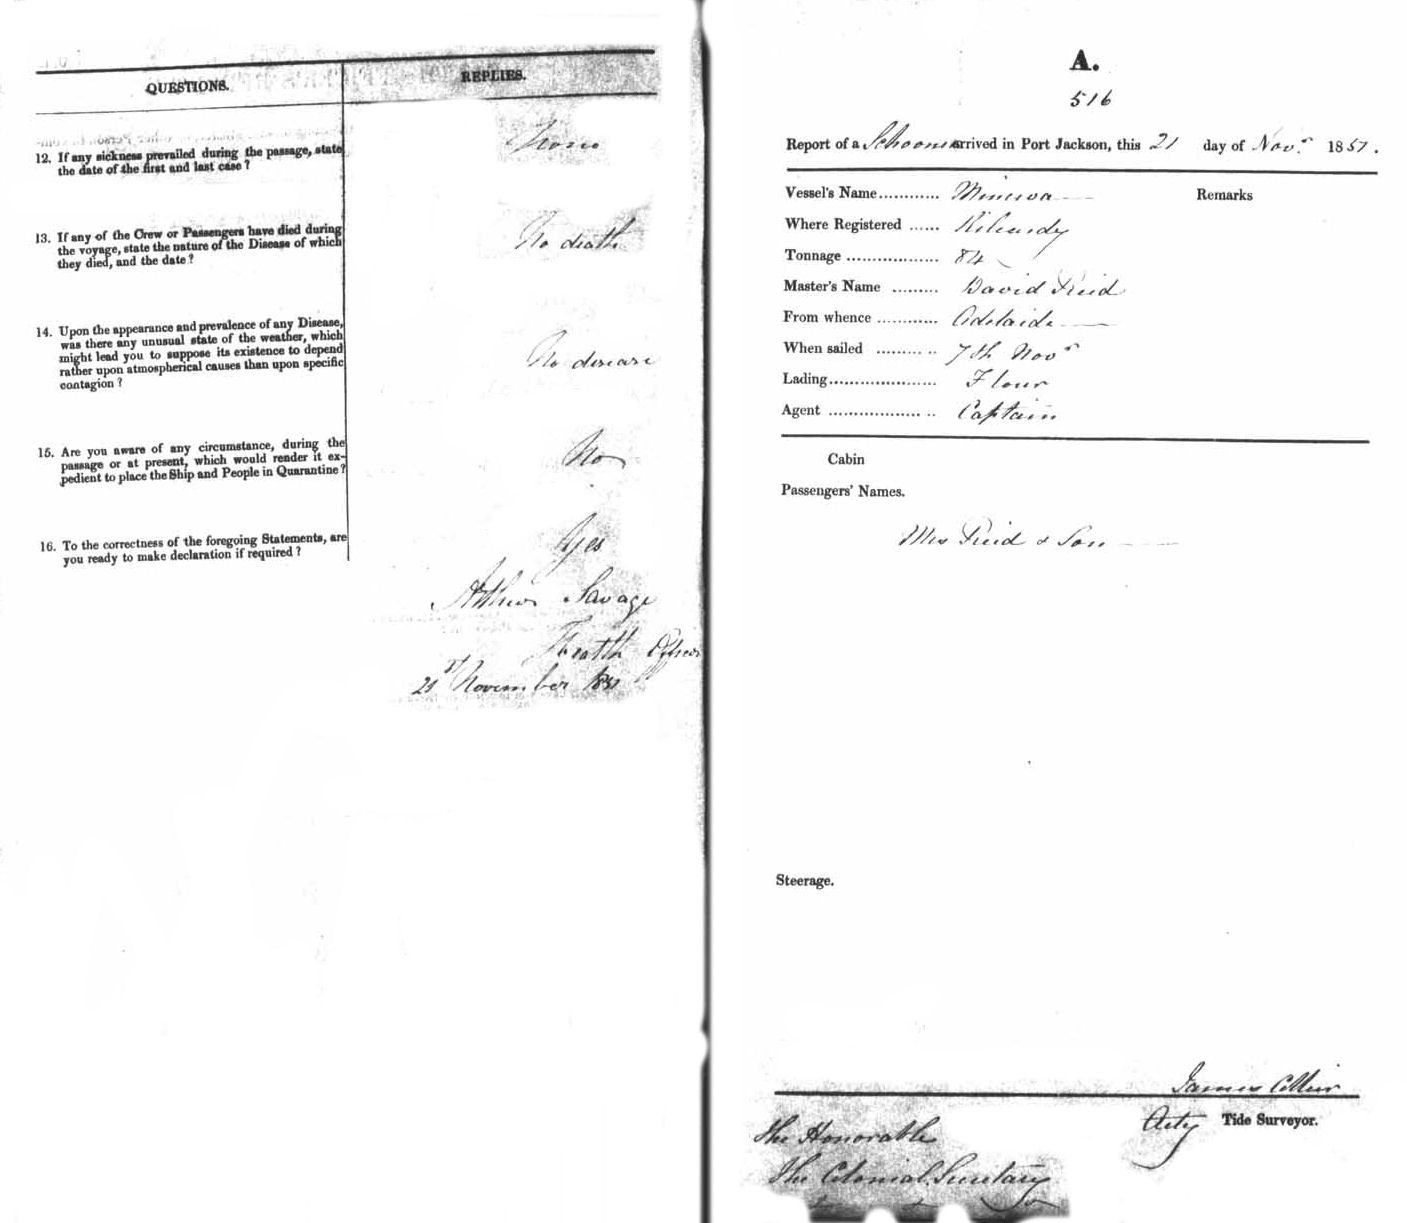 QUESTIONS.
REPLIES.
12. If any sickness prevailed during the passage, state
the date of the first and last case ?
None
13. If any of the Crew or Passengers have died during
the voyage, state the nature of the Disease of which
they died, and the date ?
No death
14. Upon the appearance and prevalence of any Disease,
was there any unusual state of the weather, which
might lead you to suppose its existence to depend
rather upon atmospherical causes than upon specific
contagion ?
No disease
15. Are you aware of any circumstance, during the
passage or at present, which would render it ex-
pedient to place the Ship and People in Quarantine ?
No
16. To the correctness of the foregoing Statements, are
you ready to make declaration if required ?
Yes
Arthur Savage
Health Officer
21st November 1851
A.
516
Report of a Schooner arrived in Port Jackson, this 21 day of Novr. 1851.
Vessel's Name............ Minerva
Remarks
Where Registered ......
Tonnage .................. 84
Master's Name ......... David Reid
From whence ............ Adelaide
When sailed ......... .. 7th Novr
Lading...................... Flour
Agent .................. .. Captain
Cabin
Passengers' Names.
Mrs Reid & Son
Steerage.
James
Actg Tide Surveyor.
The Honorable
The Colonial Secretary